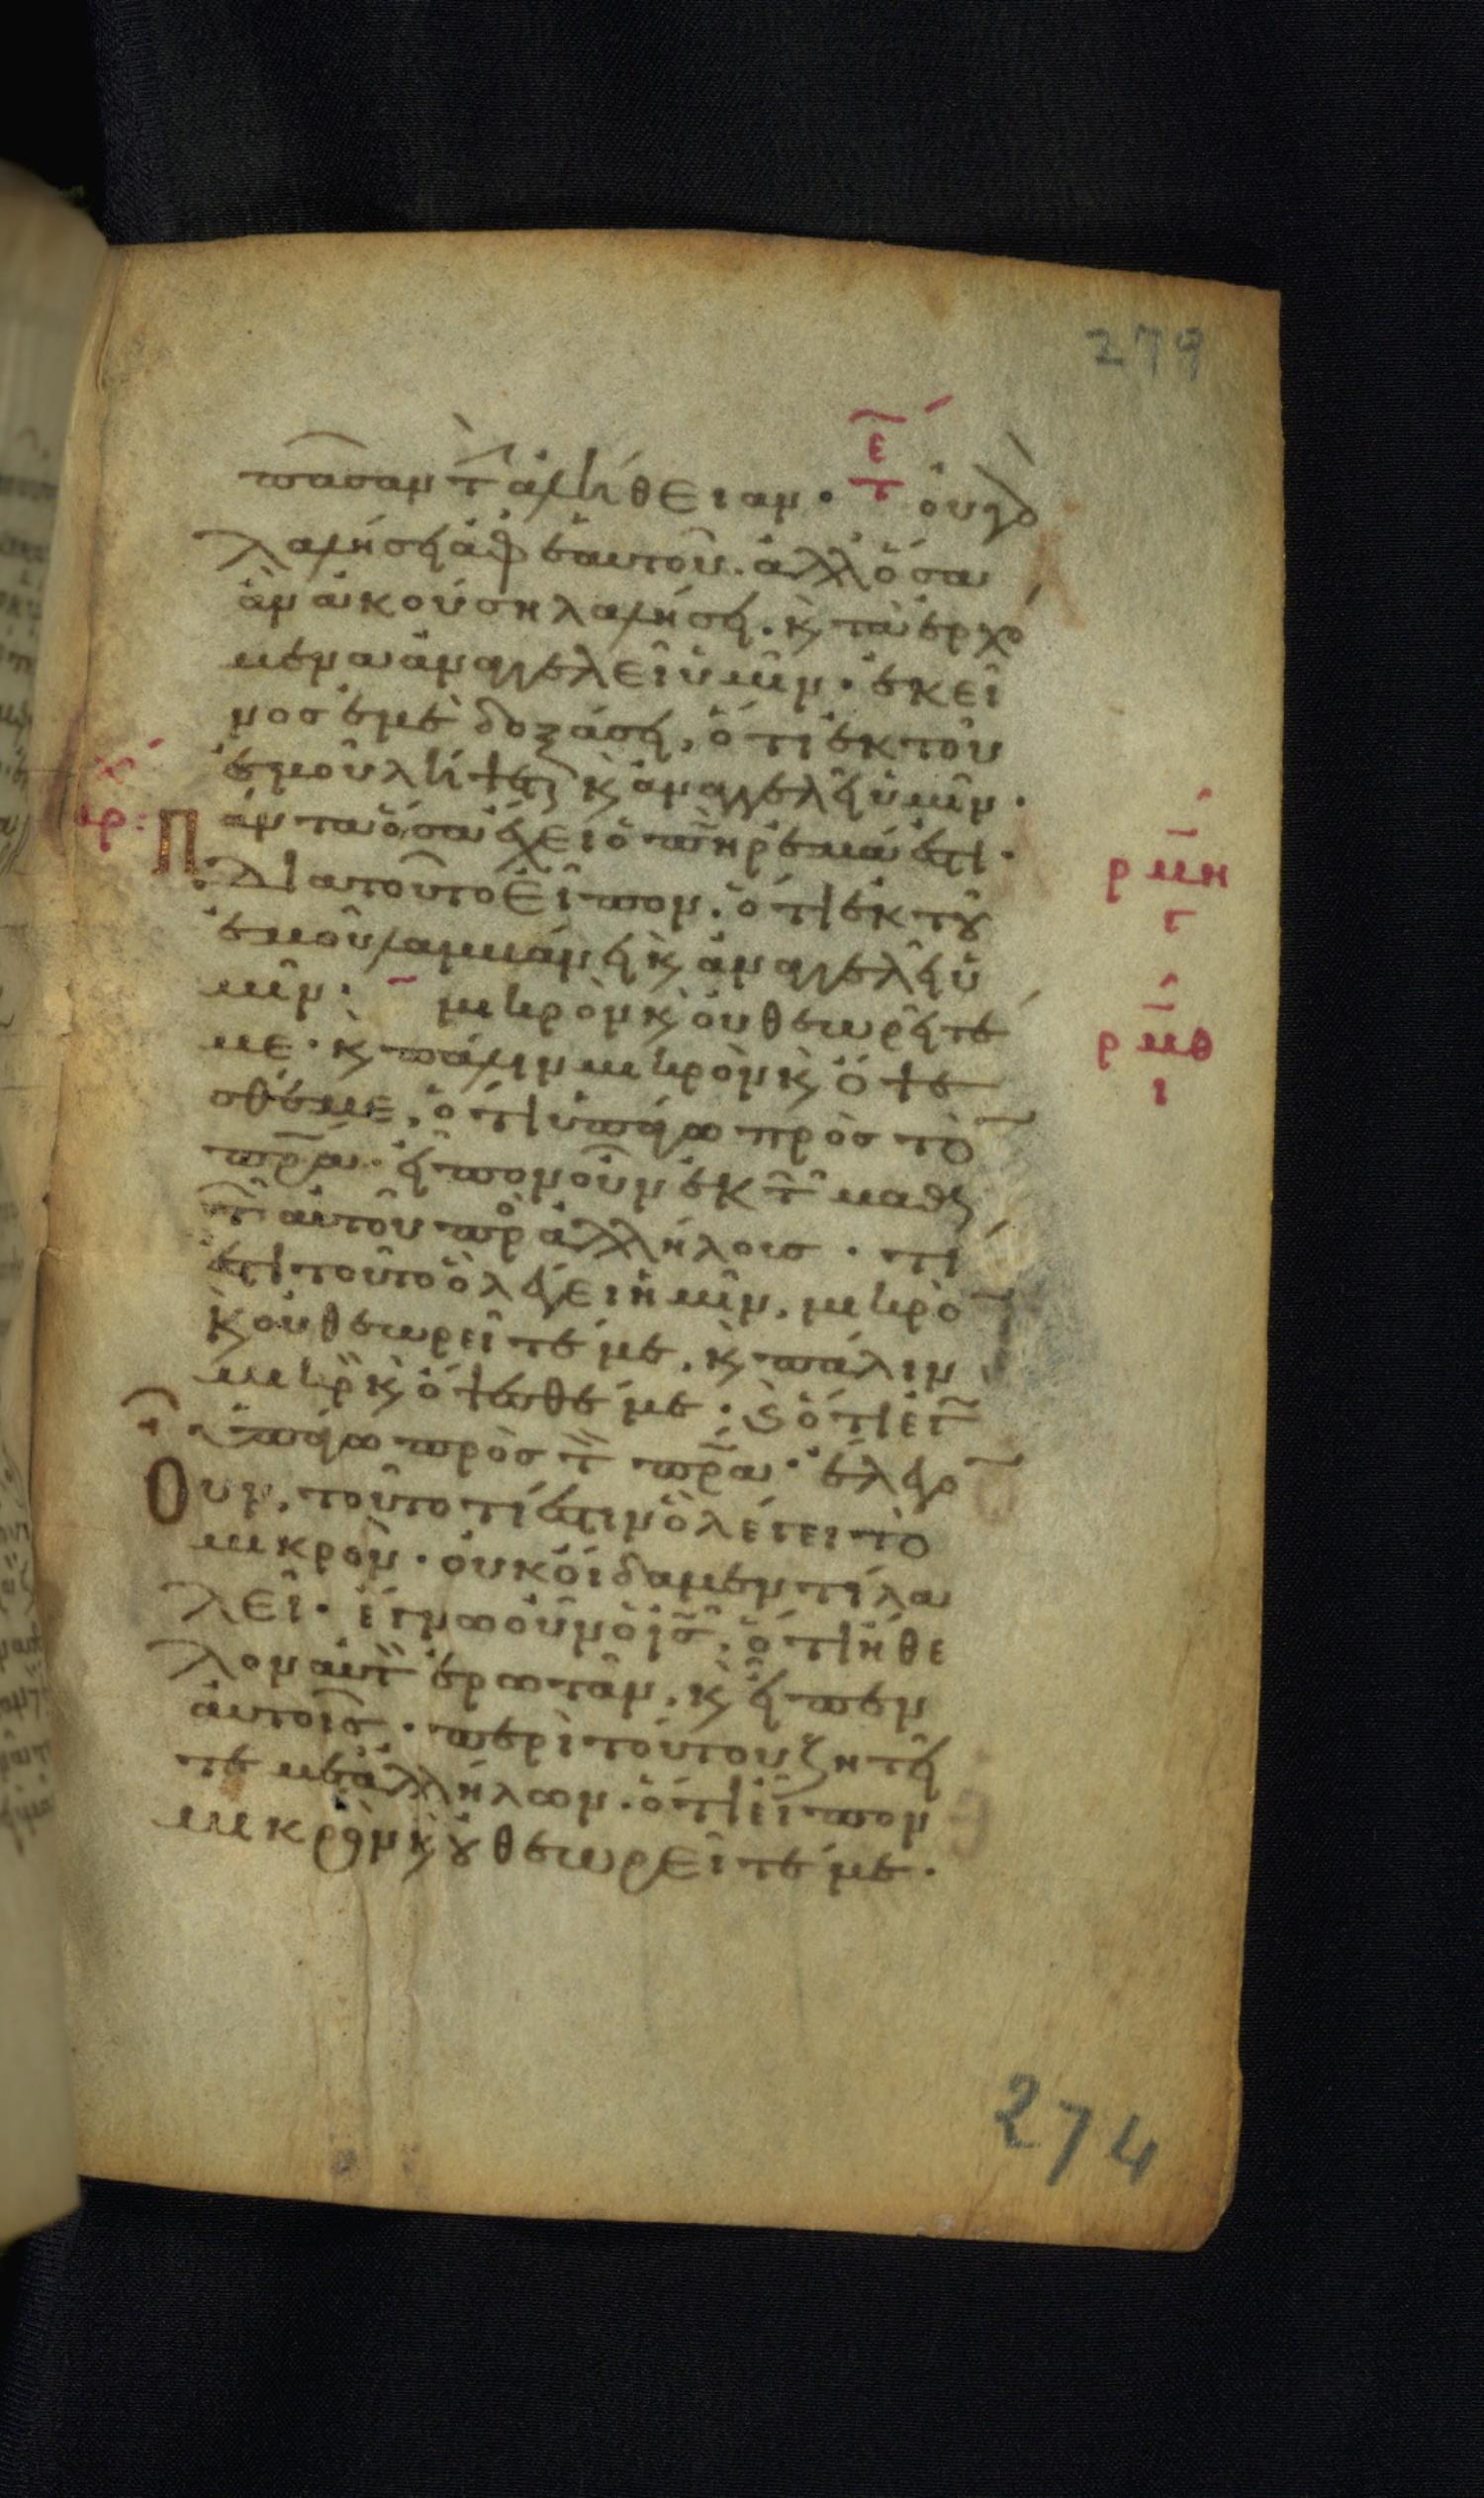 279
πᾶσαν τ ἀλήθειαν · οὐ γὰρ
λαλήσει ἀφ ἑαυτοῦ. ἀλλ ὅσα
ἂν ἀκούσῃ λαλήσει. κ τὰ ἐρχό
μενα ἀναγγελεῖ ὑμῖν · ἐκεῖ
νος ἐμὲ δοξάσει, ὅτι ἐκ τοῦ
ἐμοῦ λήψεται κ ἀναγγελεῖ ὑμῖν ·
Πάντα ὅσα ἔχει ὁ πηρ ἐμά ἐστι ·
διατοῦτο εἶπον. ὅτι ἐκ τοῦ
ἐμοῦ λαμβάνει κ ἀναγγελεῖ ὑ
μῖν · μικρὸν κ οὐ θεωρεῖτέ
με · κ πάλιν μικρὸν κ ὄψε
σθέ με, ὅτι ὑπάγω πρὸς τὸ
πρα · εἶπον οὖν ἐκ τ μαθη
τ αὐτοῦ πρ ἀλλήλους · τί
ἐστι τοῦτο ὃ λέγει ἡμῖν, μικρὸ
κ οὐ θεωρεῖτέ με, κ πάλιν
μικρ κ ὄψεσθέ με · κ ὅτι ἐγ
ὑπάγω πρὸς τ πρα · ἔλεγο
Ουν, τοῦτο τί ἐστιν ὃ λέγει τὸ
μικρὸν · οὐκ οἴδαμεν τί λα
λεῖ · ἔγνω οὖν ὁ ις, ὅτι ἤθε
λον αὐτ ἐρωτᾶν, κ εἶπεν
αὐτοῖς · περὶ τούτου ζητεῖ
τε μετ ἀλλήλων · ὅτι εἶπον
μικρὸν κ οὐ θεωρεῖτέ με ·
ρμη
ρμθ
ι
274